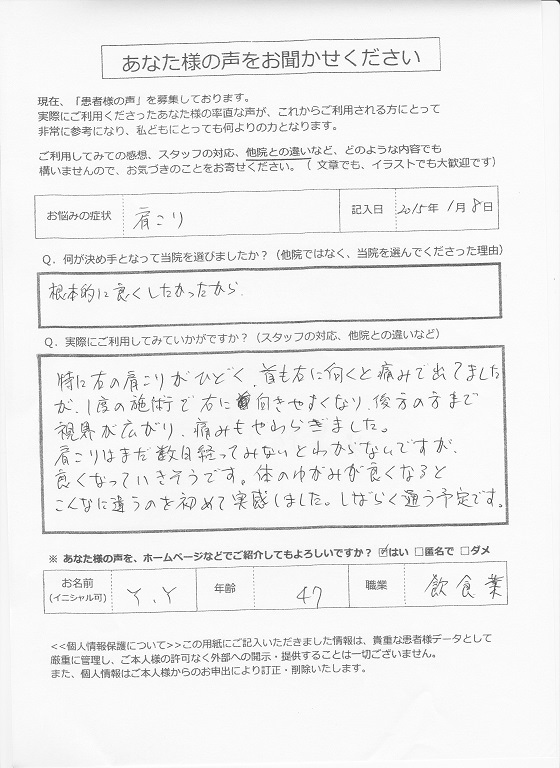 あなた様の声をお聞かせください
現在、「患者様の声」を募集しております。
実際にご利用くださったあなた様の率直な声が、これからご利用される方にとって
非常に参考になり、私どもにとっても何よりの力となります。
ご利用してみての感想、スタッフの対応、他院との違いなど、どのような内容でも
構いませんので、お気づきのことをお寄せください。（文章でも、イラストでも大歓迎です）
お悩みの症状 肩こり 記入日 2015年 1月 8日
Q．何が決め手となって当院を選びましたか？（他院ではなく、当院を選んでくださった理由）
根本的に良くしたかったから
Q．実際にご利用してみていかがですか？（スタッフの対応、他院との違いなど）
特に右の肩こりがひどく、首も右に向くと痛みで出てました
が、1度の施術で右に向きやすくなり、後方の方まで
視界が広がり、痛みもやわらぎました。
肩こりはまだ数日経ってみないとわからないですが、
良くなっていきそうです。体のゆがみが良くなると
こんなに違うのを初めて実感しました。しばらく通う予定です。
※ あなた様の声を、ホームページなどでご紹介してもよろしいですか？ ☑はい □匿名で □ダメ
お名前 Y.Y 年齢 47 職業 飲食業
(イニシャル可)
<<個人情報保護について>>この用紙にご記入いただきました情報は、貴重な患者様データとして
厳重に管理し、ご本人様の許可なく外部への開示・提供することは一切ございません。
また、個人情報はご本人様からのお申出により訂正・削除いたします。